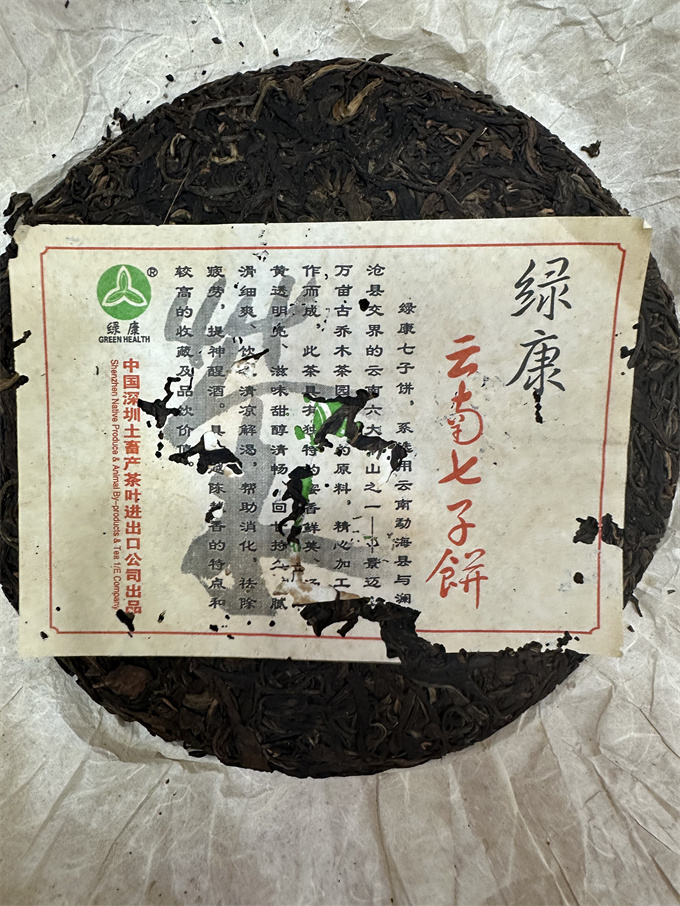 绿康
云南七子餅
绿康七子饼，系 用云南勐海县与澜
沧县交界的云南六大 山之一 景迈
万亩古乔木茶园 的原料，精心加工
作而成，此茶具有独特的 香鲜
黄透明亮、滋味甜醇清畅 回甘持 腻
滑细爽、饮 清凉解渴，帮助消化 祛除
疲劳，提神醒酒。具 越陈 香的特点和
较高的收藏及品饮价
茶
®
绿康
GREEN HEALTH
中国深圳土畜产茶叶进出口公司出品
Shenzhen Native Produce & Animal By-products & Tea I/E Company